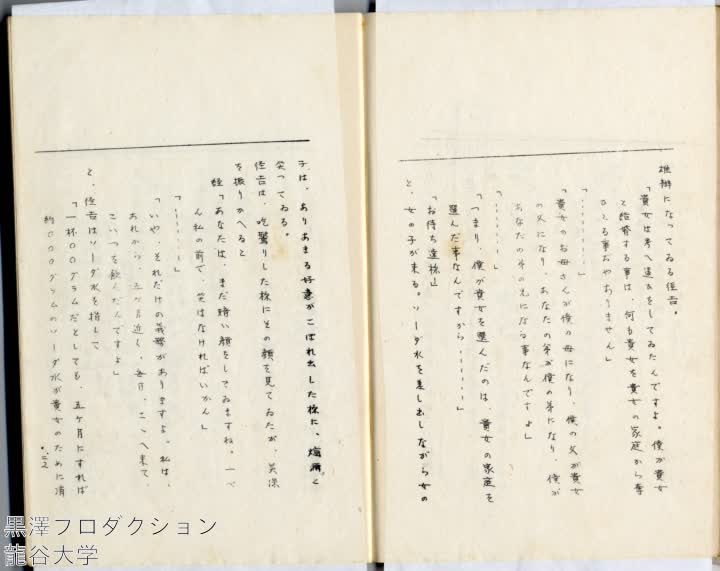 雄辯になってゐる径吉。
「貴女は考へ違ひをしてゐたんですよ。僕が貴女
と結婚する事は、何も貴女を貴女の家庭から奪
ひとる事ぢやありません」
「………」
「貴女のお母さんが僕の母になり、僕の父が貴女
の父になり、あなたの弟が僕の弟になり、僕が
あなたの弟の兄になる事なんですよ」
「………」
「つまり、僕が貴女を選んだのは、貴女の家庭を
選んだ事なんですから………」
「お待ち遠様」
と、女の子が来る。ソーダ水を差し出しながら女の
子は、ありあまる好意がこぼれ出した様に、
笑ってゐる。
径吉は、吃驚りした様にその顔を見てゐたが、
を振りかへると
「あなたは、まだ暗い顔をしてゐますね。一ぺ
ん私の前で、笑はなければいかん」
「………」
「いや、それだけの義務がありますよ。私は、
あれから、五ヶ月近く、毎日、こゝへ来て、
こいつを飲んだんですよ」
と、径吉はソーダ水を指して
「一杯〇〇〇グラムだとしても、五ヶ月にすれば
約〇〇〇グラムのソーダ水が貴女のために消
黒澤プロダクション
龍谷大学